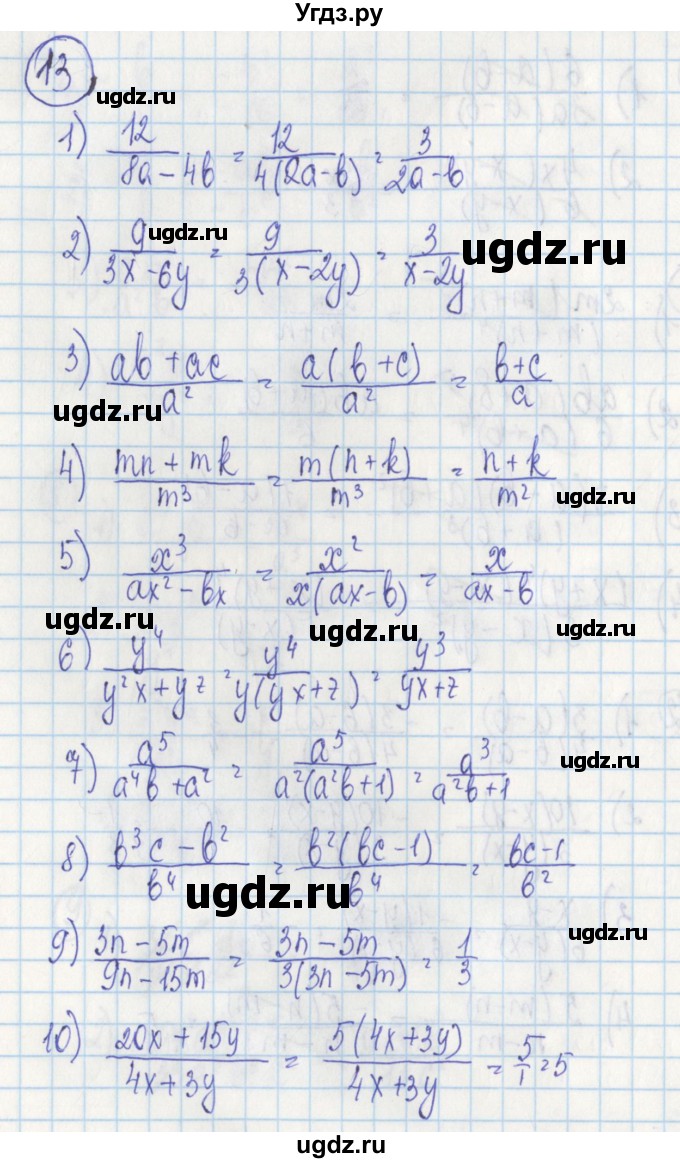 Угдз.ру
13
ugdz.ru
1) 12/(8a - 4b) = 12/(4(2a - b)) = 3/(2a - b)
ugdz.ru
2) 9/(3x - 6y) = 9/(3(x - 2y)) = 3/(x - 2y)
ugdz.ru
3) (ab + ac)/a² = a(b + c)/a² = (b + c)/a
ugdz.ru
4) (mn + mk)/m³ = m(n + k)/m³ = (n + k)/m²
ugdz.ru
5) x³/(ax² - bx) = x²/(x(ax - b)) = x/(ax - b)
ugdz.ru
ugdz.ru
ugdz.ru
6) y⁴/(y²x + yz) = y⁴/(y(yx + z)) = y³/(yx + z)
7) a⁵/(a⁴b + a²) = a⁵/(a²(a²b + 1)) = a³/(a²b + 1)
ugdz.ru
ugdz.ru
8) (b³c - b²)/b⁴ = b²(bc - 1)/b⁴ = (bc - 1)/b²
ugdz.ru
9) (3n - 5m)/(9n - 15m) = (3n - 5m)/(3(3n - 5m)) = 1/3
ugdz.ru
10) (20x + 15y)/(4x + 3y) = 5(4x + 3y)/(4x + 3y) = 5/1 = 5
ugdz.ru
ugdz.ru